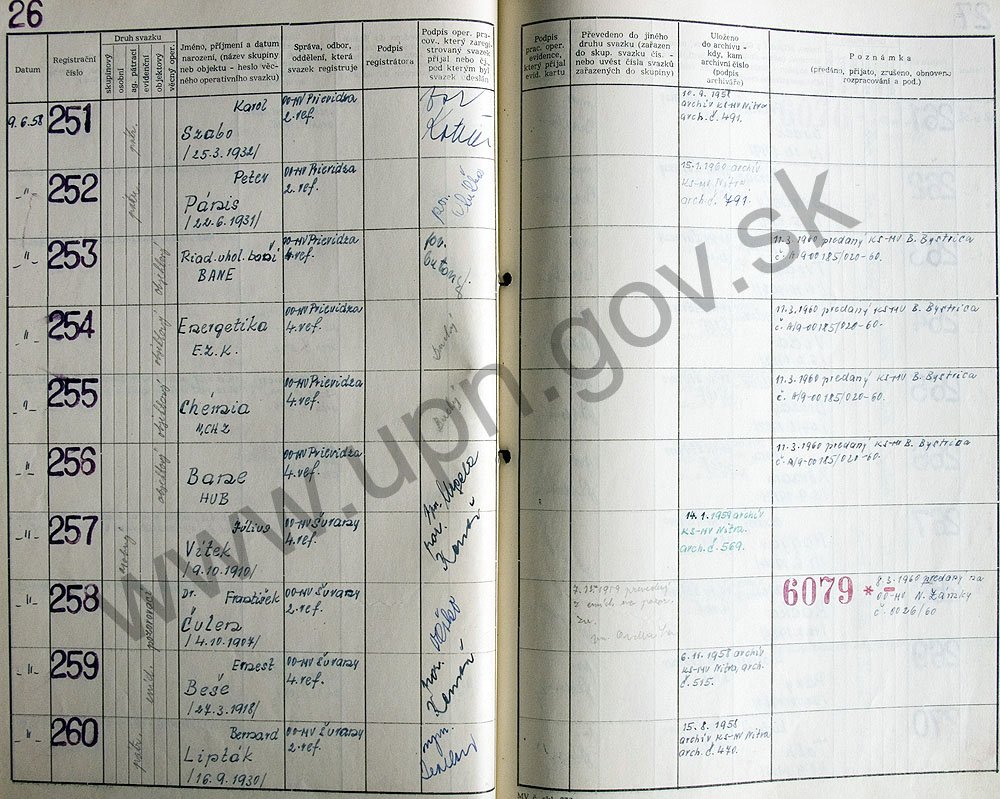 26
Datum
Registrační číslo
Druh svazku
skupinový
osobní
ag. pátrací
evidenční
objektový
věcný oper.
Jméno, příjmení a datum
narození, (název skupiny
neb objektu - heslo věc-
ného operativního svazku)
Správa, odbor,
oddělení, která
svazek registruje
Podpis
registrátora
Podpis oper. pra-
cov., který zaregi-
strovaný svazek
přijal neb čj.
pod kterým byl
svazek doslán
Podpis
prac. oper.
evidence,
který přijal
evid. kartu
Převedeno do jiného
druhu svazku (zařazen
do skup. svazku čís. -
nebo uvést čísla svazků
zařazených do skupiny)
Uloženo
do archivu -
kdy, kam
archivní číslo
(podpis
archiváře)
Poznámka
(předáno, přijato, zrušeno, obnoveno
rozpracování a pod.)
9.6.58
251
Karol
Szabo
/25.3.1932/
OO-MV Prievidza
2. ref.
10.9.1958
archív KS-MV Nitra
arch. č. 491.
-"-
252
Peter
/22.6.1931/
OO-MV Prievidza
2. ref.
15.1.1960 archív
KS-MV Nitra
arch. č. 791.
-"-
253
objektový
Riad. uhol. baní
BANE
OO-MV Prievidza
4. ref.
11.3.1960 predaný KS-MV B. Bystrica
č. A/9-00185/020-60.
-"-
254
objektový
Energetika
E.Z.K.
OO-MV Prievidza
4. ref.
11.3.1960 predaný KS-MV B. Bystrica
č. A/9-00185/020-60.
-"-
255
objektový
Chémia
OO-MV Prievidza
4. ref.
11.3.1960 predaný KS-MV B. Bystrica
č. A/9-00185/020-60.
-"-
256
objektový
Bane
HUB
OO-MV Prievidza
4. ref.
11.3.1960 predaný KS-MV B. Bystrica
č. A/9-00185/020-60.
-"-
257
Július
Vítek
/9.10.1910/
OO-MV Šurany
4. ref.
14.1.1959 archív
KS-MV Nitra.
arch. č. 569.
-"-
258
pozorovací
Dr. František
Čulen
/4.10.1907/
OO-MV Šurany
2. ref.
6079 *
8.3.1960 predaný na
OO-MV N. Zámky
č. 0026/60
-"-
259
Ernest
Beše
/27.3.1918/
OO-MV Šurany
4. ref.
6.11.1958 archív
KS-MV Nitra, arch.
č. 515.
-"-
260
Bernard
Lipták
/16.9.1930/
OO-MV Šurany
2. ref.
15.8.1958
archív KS-MV Nitra
arch. č. 470.
www.upn.gov.sk